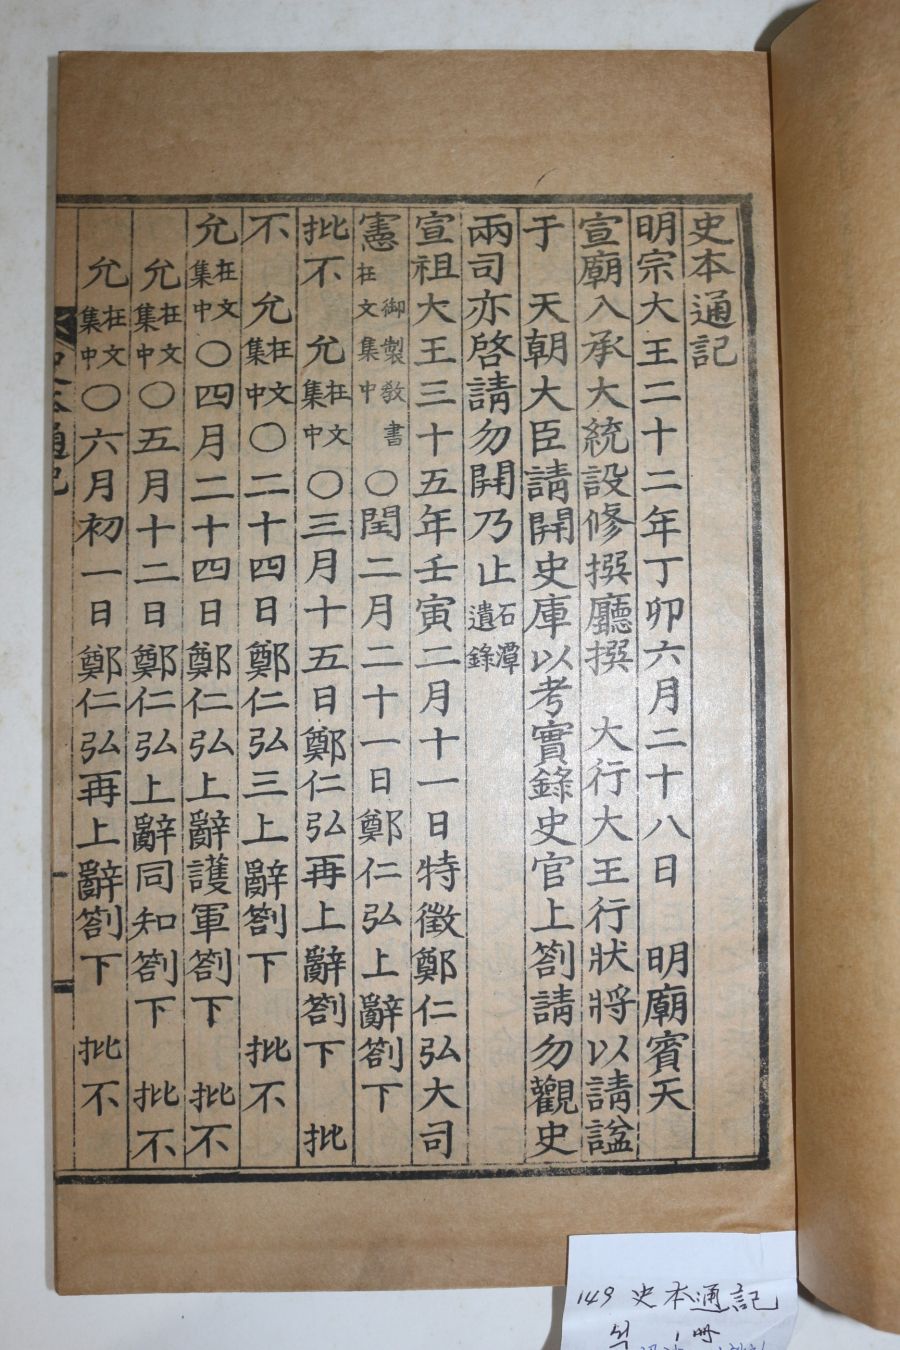 史本通記
明宗大王二十二年丁卯六月二十八日　明廟賓天
宣廟入承大統設修撰廳撰　大行大王行狀將以請諡
于　天朝大臣請開史庫以考實錄史官上劄請勿觀史
兩司亦啓請勿開乃止石潭遺錄
宣祖大王三十五年壬寅二月十一日特徵鄭仁弘大司
憲御製敎書在文集中〇閏二月二十一日鄭仁弘上辭劄下
批不　允在文集中〇三月十五日鄭仁弘再上辭劄下　批
不　允在文集中〇二十四日鄭仁弘三上辭劄下　批不
允在文集中〇四月二十四日鄭仁弘上辭護軍劄下　批不
允在文集中〇五月十二日鄭仁弘上辭同知劄下　批不
允在文集中〇六月初一日鄭仁弘再上辭劄下　批不
史本通記
149 史本通記
1冊